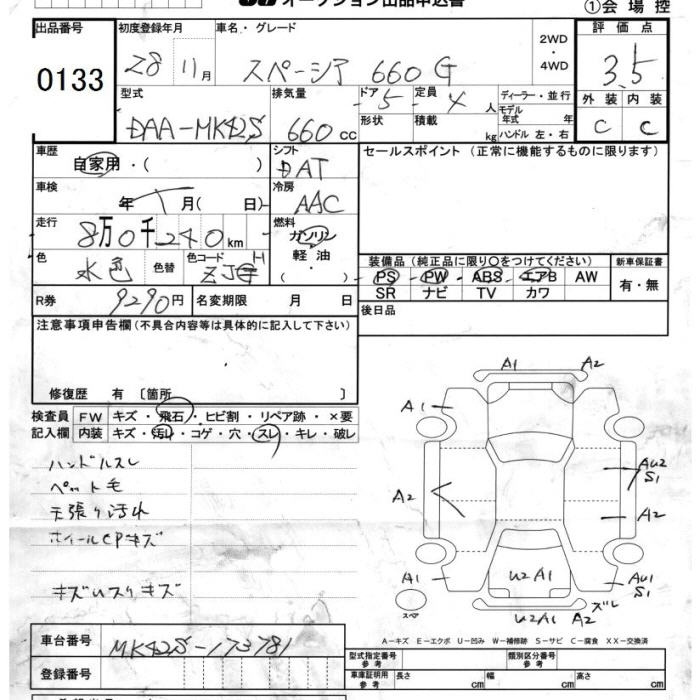 オークション出品申込書
①会場控
出品番号 0133
初度登録年月 28 11月
車名・グレード スペーシア 660 G
2WD・4WD
評価点 3.5
外装 内装
C C
型式 DAA-MK42S
排気量 660cc
ドア 5 定員 4人
形状 積載 kg
ディーラー・並行
モデル年式 年
ハンドル 左・右
車歴 自家用・( )
シフト DAT
車検 年 月( 日)
冷房 AAC
走行 8万0千240km
燃料 ガソリン・軽油・( )
色 水色 色替 色コード
R券 9290円 名変期限 月 日
セールスポイント (正常に機能するものに限ります)
装備品(純正品に限り〇をつけてください) 新車保証書
PS PW ABS エアB AW 有・無
SR ナビ TV カワ
後日品
注意事項申告欄(不具合内容等は具体的に記入して下さい)
修復歴 有〔箇所 〕
検査員 FW キズ・飛石・ヒビ割・リペア跡・×要
記入欄 内装 キズ・汚れ・コゲ・穴・スレ・キレ・破レ
ハンドルスレ
ペット毛
天張り汚れ
ホイールCPキズ
キズUスリキズ
A1 A2
A1
AU2
S1
A2 A2
A1 U2A1 AU1
S1
スペア
U2A1 A2 ズレ
A-キズ E-エクボ U-凹み W-補修跡 S-サビ C-腐食 XX-交換済
車台番号 MK42S-173781
登録番号
型式指定番号 参考 類別区分番号 参考
車庫証明用 参考 長さ cm 幅 cm 高さ cm